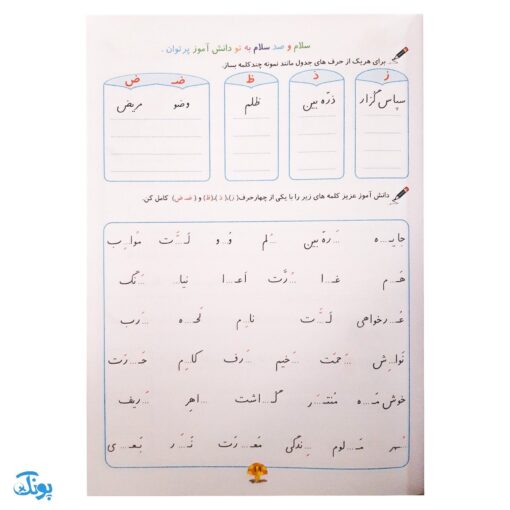 سلام و صد سلام به تو دانش آموز پرتوان.
برای هریک از حرف های جدول مانند نمونه چند کلمه بساز.
ز ذ ظ ضـ ض
سپاس گزار ذرّه بین ظلم وضو مریض
دانش آموز عزیز کلمه های زیر را با یکی از چهار حرف( ز)،( ذ )،(ظ) و ( ضـ ض) کامل کن.
جایـ...ه ...رّه بین ...لم وُ...و لَـ...ّت مُوا...ِب
هَـ...م غـ...ا ...رَّت اَعـ...ا نیا... ...َنگ
عُـ...رخواهی لَـ...َّت نا...ِم لَحـ...ه ...َرب
نَوا...ِش ...َحمَت ...َخیم ...َرف کا...ِم حَـ...رَت
خوش مَـ...ه مُنتـَ...ـَر گُـ...اشت ...اهِر ...َریف
...ـهر مَـ...لوم ...ِندگی مَعـ...رَت نَـ...َر بَعـ...ی
پونک